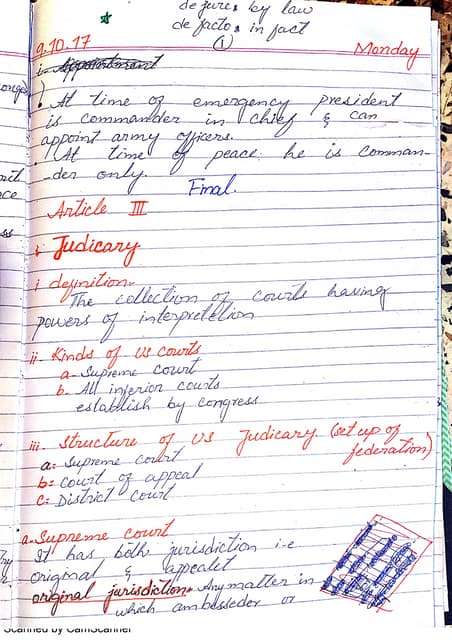 de jure: by law
de facto: in fact
9.10.17
(1)
Monday
i. Appointment
At time of emergency president
is commander in chief & can
appoint army officers.
At time of peace: he is comman-
-der only.
Final.
Article III
i Judicary
i definition-
The collection of courts having
powers of interpretetion
ii- Kinds of US courts
a- Supreme court
b. All inferior courts
establish by congress
iii- Structure of US Judicary. (set up of
federation)
a: Supreme court
b: court of appeal
c: District court
a- Supreme court
It has both jurisdiction i.e
original & appealet
original jurisdiction- Any matter in
which ambesseder or
Scanned by CamScanner